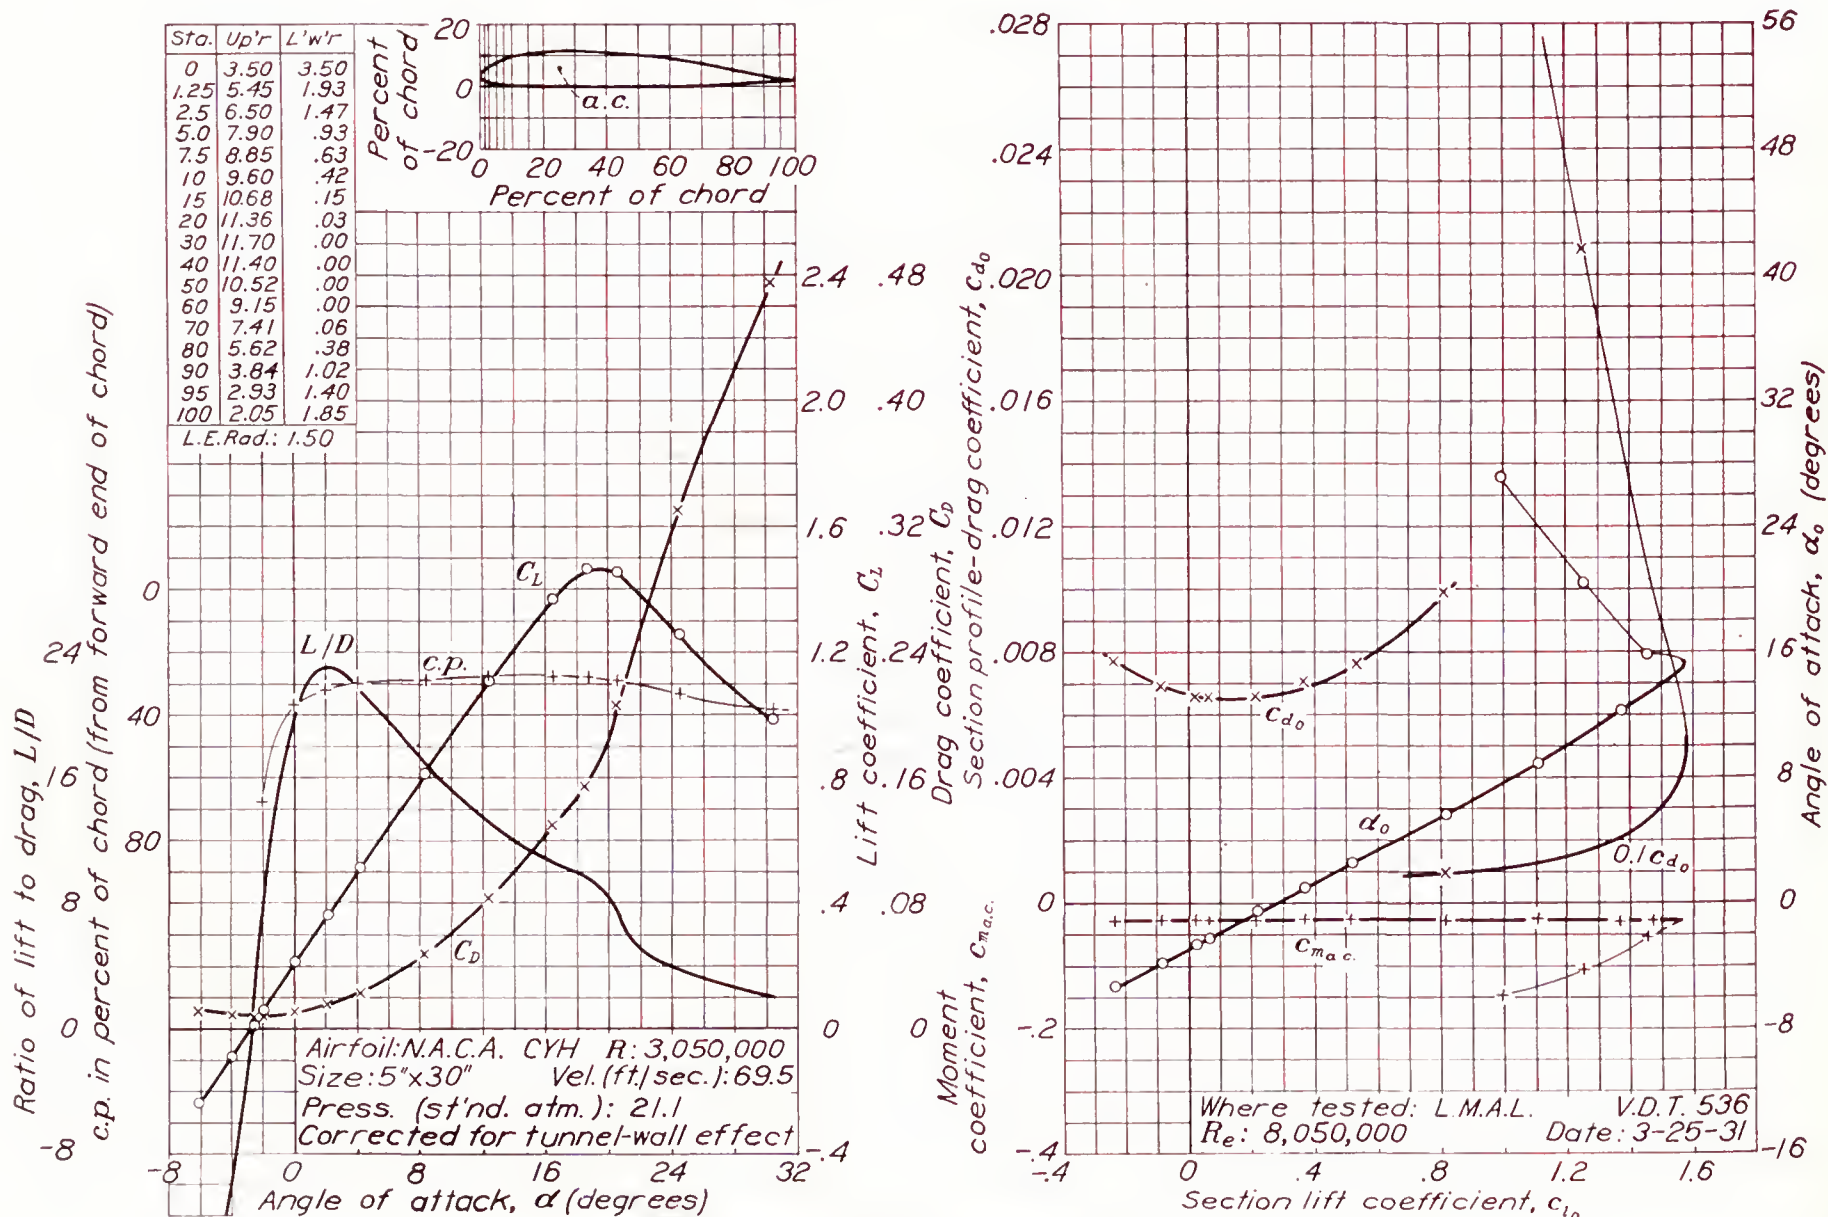 Sta. Up'r L'w'r
0 3.50 3.50
1.25 5.45 1.93
2.5 6.50 1.47
5.0 7.90 .93
7.5 8.85 .63
10 9.60 .42
15 10.68 .15
20 11.36 .03
30 11.70 .00
40 11.40 .00
50 10.52 .00
60 9.15 .00
70 7.41 .06
80 5.62 .38
90 3.84 1.02
95 2.93 1.40
100 2.05 1.85
L.E.Rad.: 1.50
Percent of chord
20
0
-20
a.c.
0 20 40 60 80 100
Percent of chord
Ratio of lift to drag, L/D
24
16
8
0
-8
c.p. in percent of chord (from forward end of chord)
0
40
80
L/D
c.p.
C_L
C_D
2.4 .48
2.0 .40
1.6 .32
1.2 .24
.8 .16
.4 .08
0 0
-.4
Lift coefficient, C_L
Drag coefficient, C_D
Airfoil: N.A.C.A. CYH R: 3,050,000
Size: 5"x30" Vel. (ft./sec.): 69.5
Press. (st'nd. atm.): 21.1
Corrected for tunnel-wall effect
-8 0 8 16 24 32
Angle of attack, α (degrees)
Section profile-drag coefficient, c_d₀
.028
.024
.020
.016
.012
.008
.004
0
-.2
-.4
Moment coefficient, c_m a.c.
c_d₀
α₀
0.1 c_d₀
c_m a.c.
56
48
40
32
24
16
8
0
-8
-16
Angle of attack, α₀ (degrees)
Where tested: L.M.A.L. V.D.T. 536
R_e: 8,050,000 Date: 3-25-31
-.4 0 .4 .8 1.2 1.6
Section lift coefficient, c_l₀